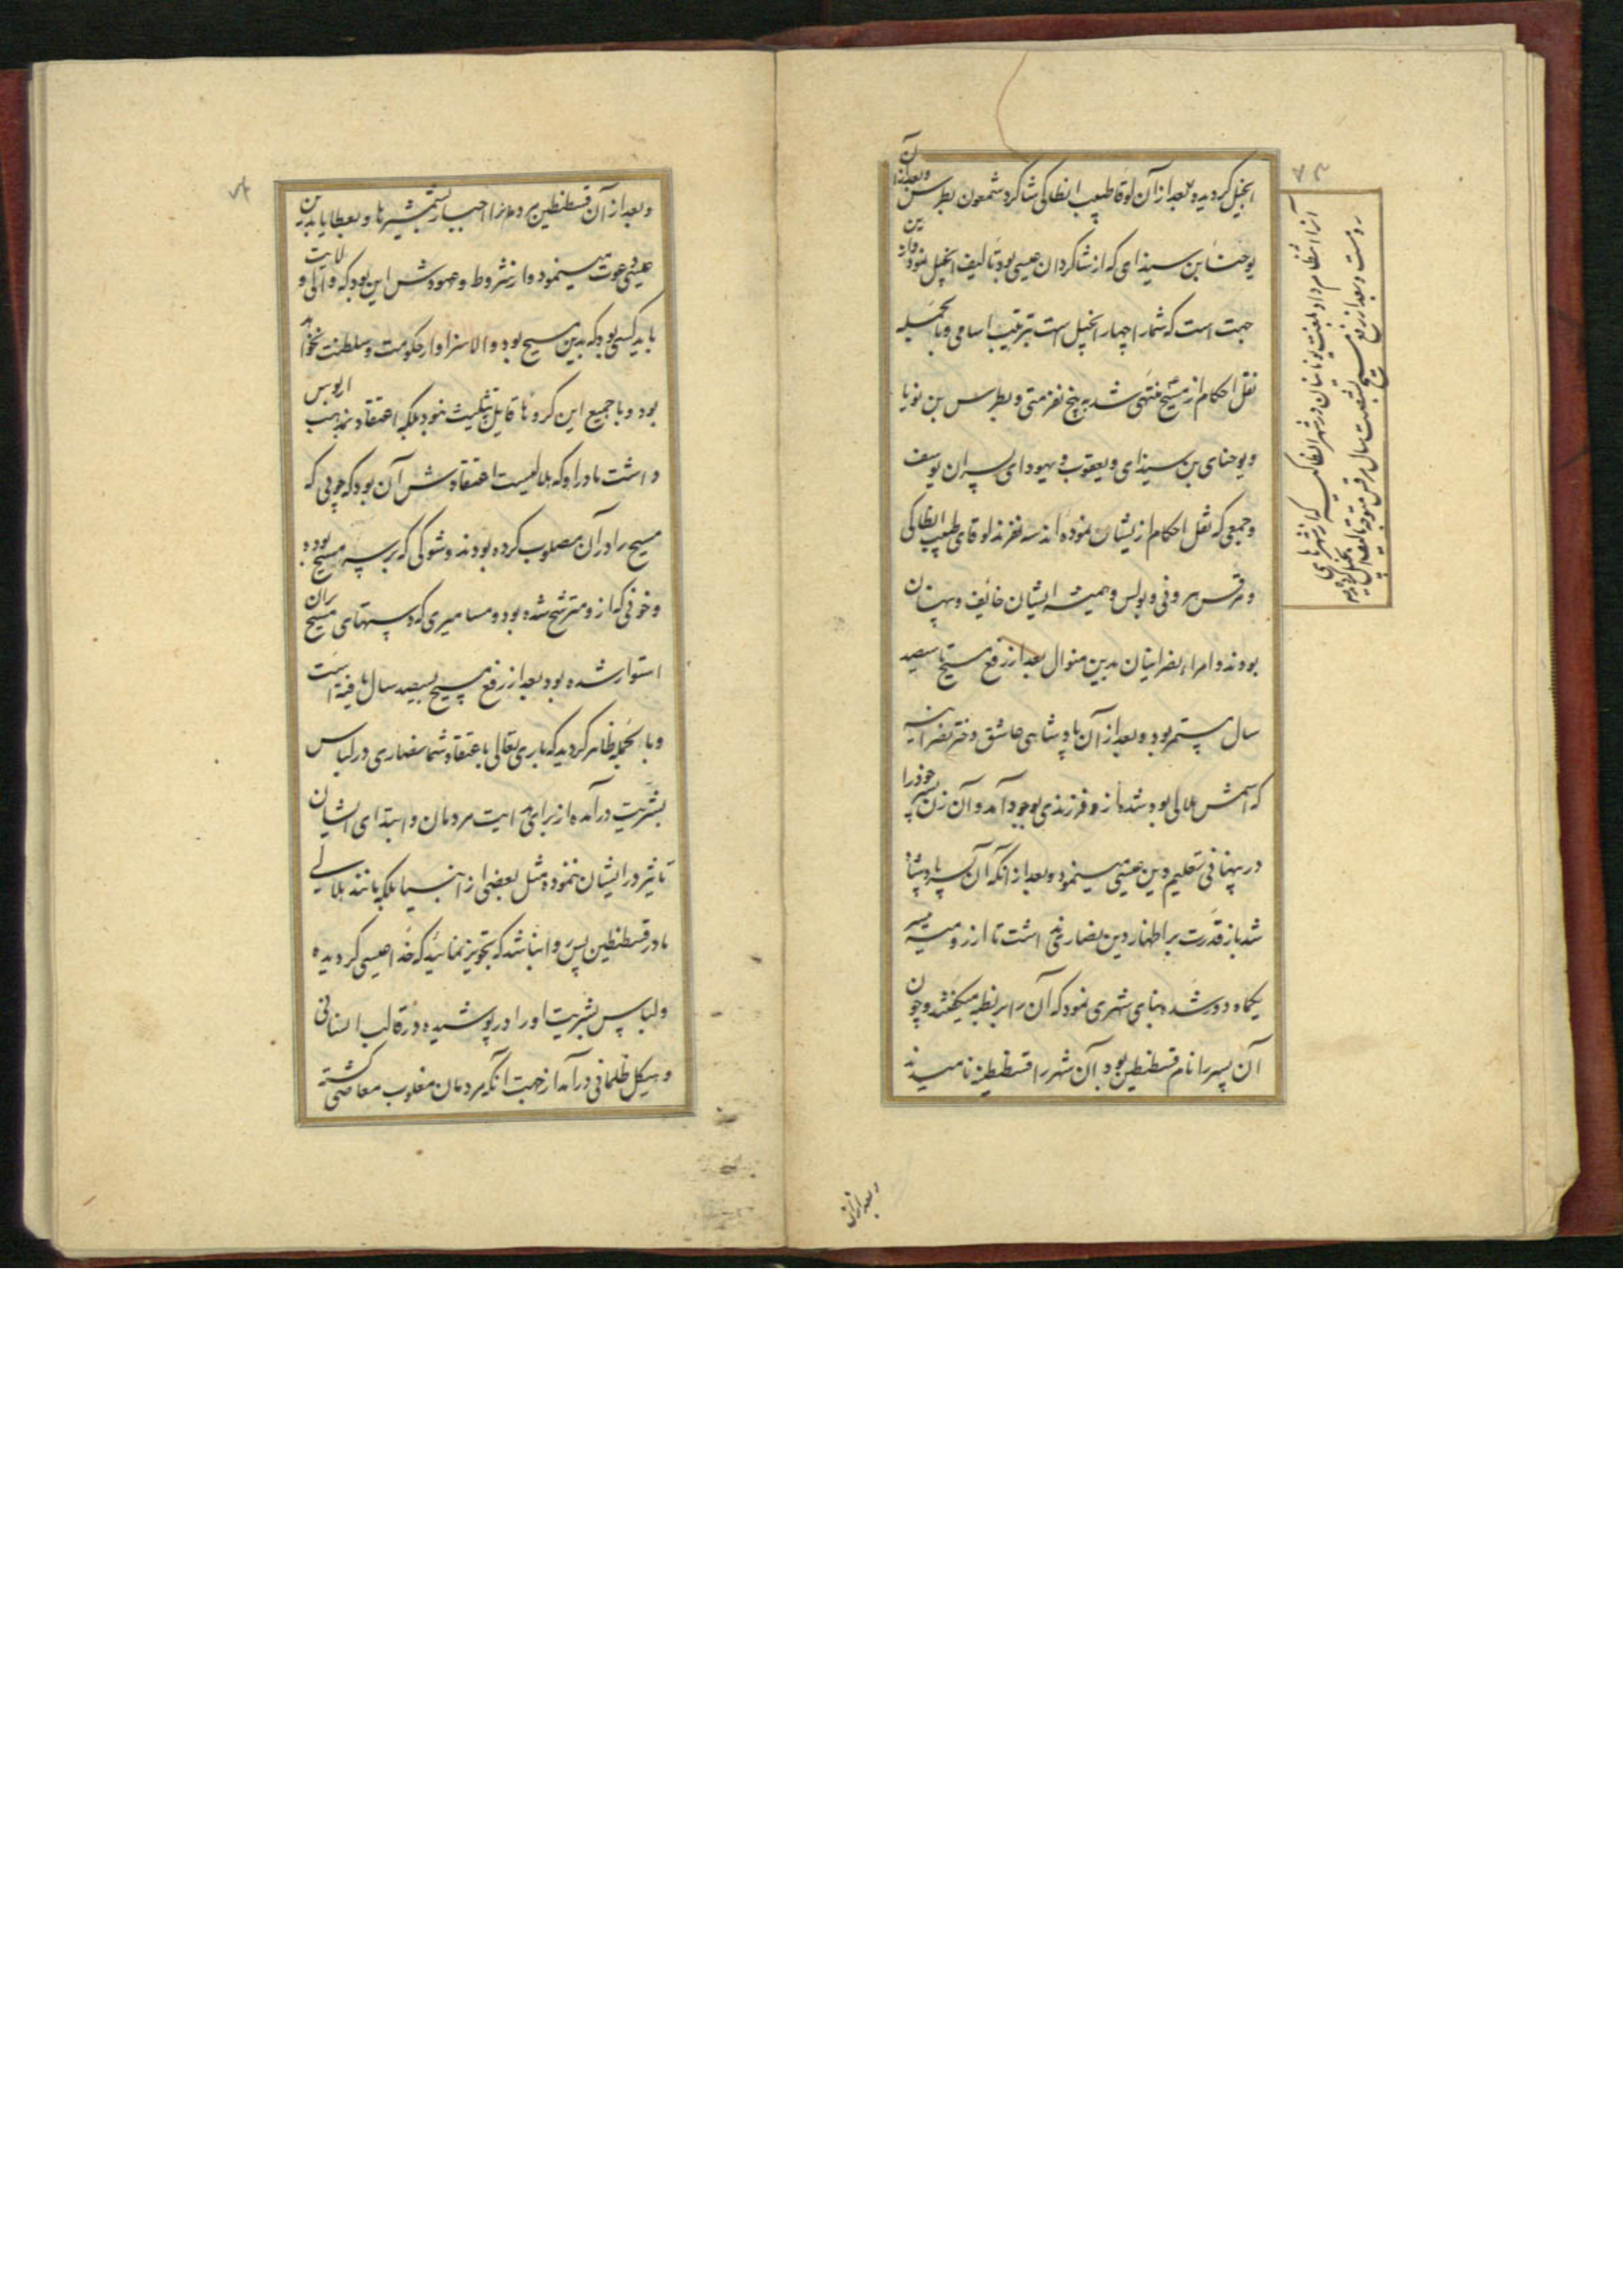 ۷۳
انجیل گردید و بعد از آن لوقا طبیب انطاکی شاگرد شمعون بطرس و بعد از آن
یوحنا بن سیذای که از شاگردان عیسی بود تالیف انجیل نمود و از این
جهت است که شمار اچهار انجیل است بترتیب اسامی و بالجمله
نقل احکام از مسیح منتهی شد به پنج نفر متی و بطرس بن نوریا
و یوحنای بن سیذای و یعقوب و یهودای پسران یوسف
و جمعی که نقل احکام از یشان نموده اند سه نفرند لوقای طبیب انطاکی
و مرقس هرونی و بولس و همیشه ایشان خائف و پنهان
بودند و امراء نصرانیان بدین منوال بعد از رفع مسیح تا سیصد
سال مستمر بود و بعد از آن پادشاهی عاشق دختر نصرانیه
که اسمش هلالی بود شده از و فرزندی بوجود آمد و آن زن پسر خود را
در پنهانی تعلیم دین عیسی مینمود و بعد از آنکه آن پسر پادشاه
شد باز قدرت بر اظهار دین نصاری نداشت تا از رومیه
یکماه دور شده بنای شهری نمود که آن را بربطیه میگفتند و چون
آن پسر را نام قسطنطین بود آن شهر را قسطنطنیه نامیدند
آنرا انتظام داد بلغت یونانیان در شهر انطاکیه که از شهرهای
روم است و بعد از رفع مسیح بشصت سال مرقس متوجه تالیف
انجیل گردید
و بعد از آن
۷۴
و بعد از آن قسطنطین مردم را اجبار بشمشیرها و بعطایا بدین
عیسی دعوت مینمود و از شروط و عهودش این بود که والی ولایت
باید کسی بود که بدین مسیح بود و الا سزاوار حکومت و سلطنت نخواهد
بود و با جمیع این کروها قایل بتثلیث نبود بلکه اعتقاد بمذهب اریوس
داشت مادر او که هلالیست اعتقادش آن بود که چوبی که
مسیح را در آن مصلوب کرده بودند و شوکی که بر سر مسیح بوده
و خونی که از و مترشح شده بود و مسامیری که دستهای مسیح بران
استوار شده بود بعد از رفع مسیح بسیصد سال یافته است
و بالجمله ظاهر گردید که باری تعالی باعتقاد شما نصاری در لباس
بشریت در آمده از برای هدایت مردمان و ابتدای ایشان
تاثیر در ایشان ننموده مثل بعضی از انبیا بلکه مانند هلالی
مادر قسطنطین پس روا نباشد که تجویز نمائید که خدا عیسی گردیده
و لباس بشریت او را در پوشیده در قالب انسانی
و هیکل ظلمانی در آمد از جهت آنکه مردمان مغلوب معاصی گشته